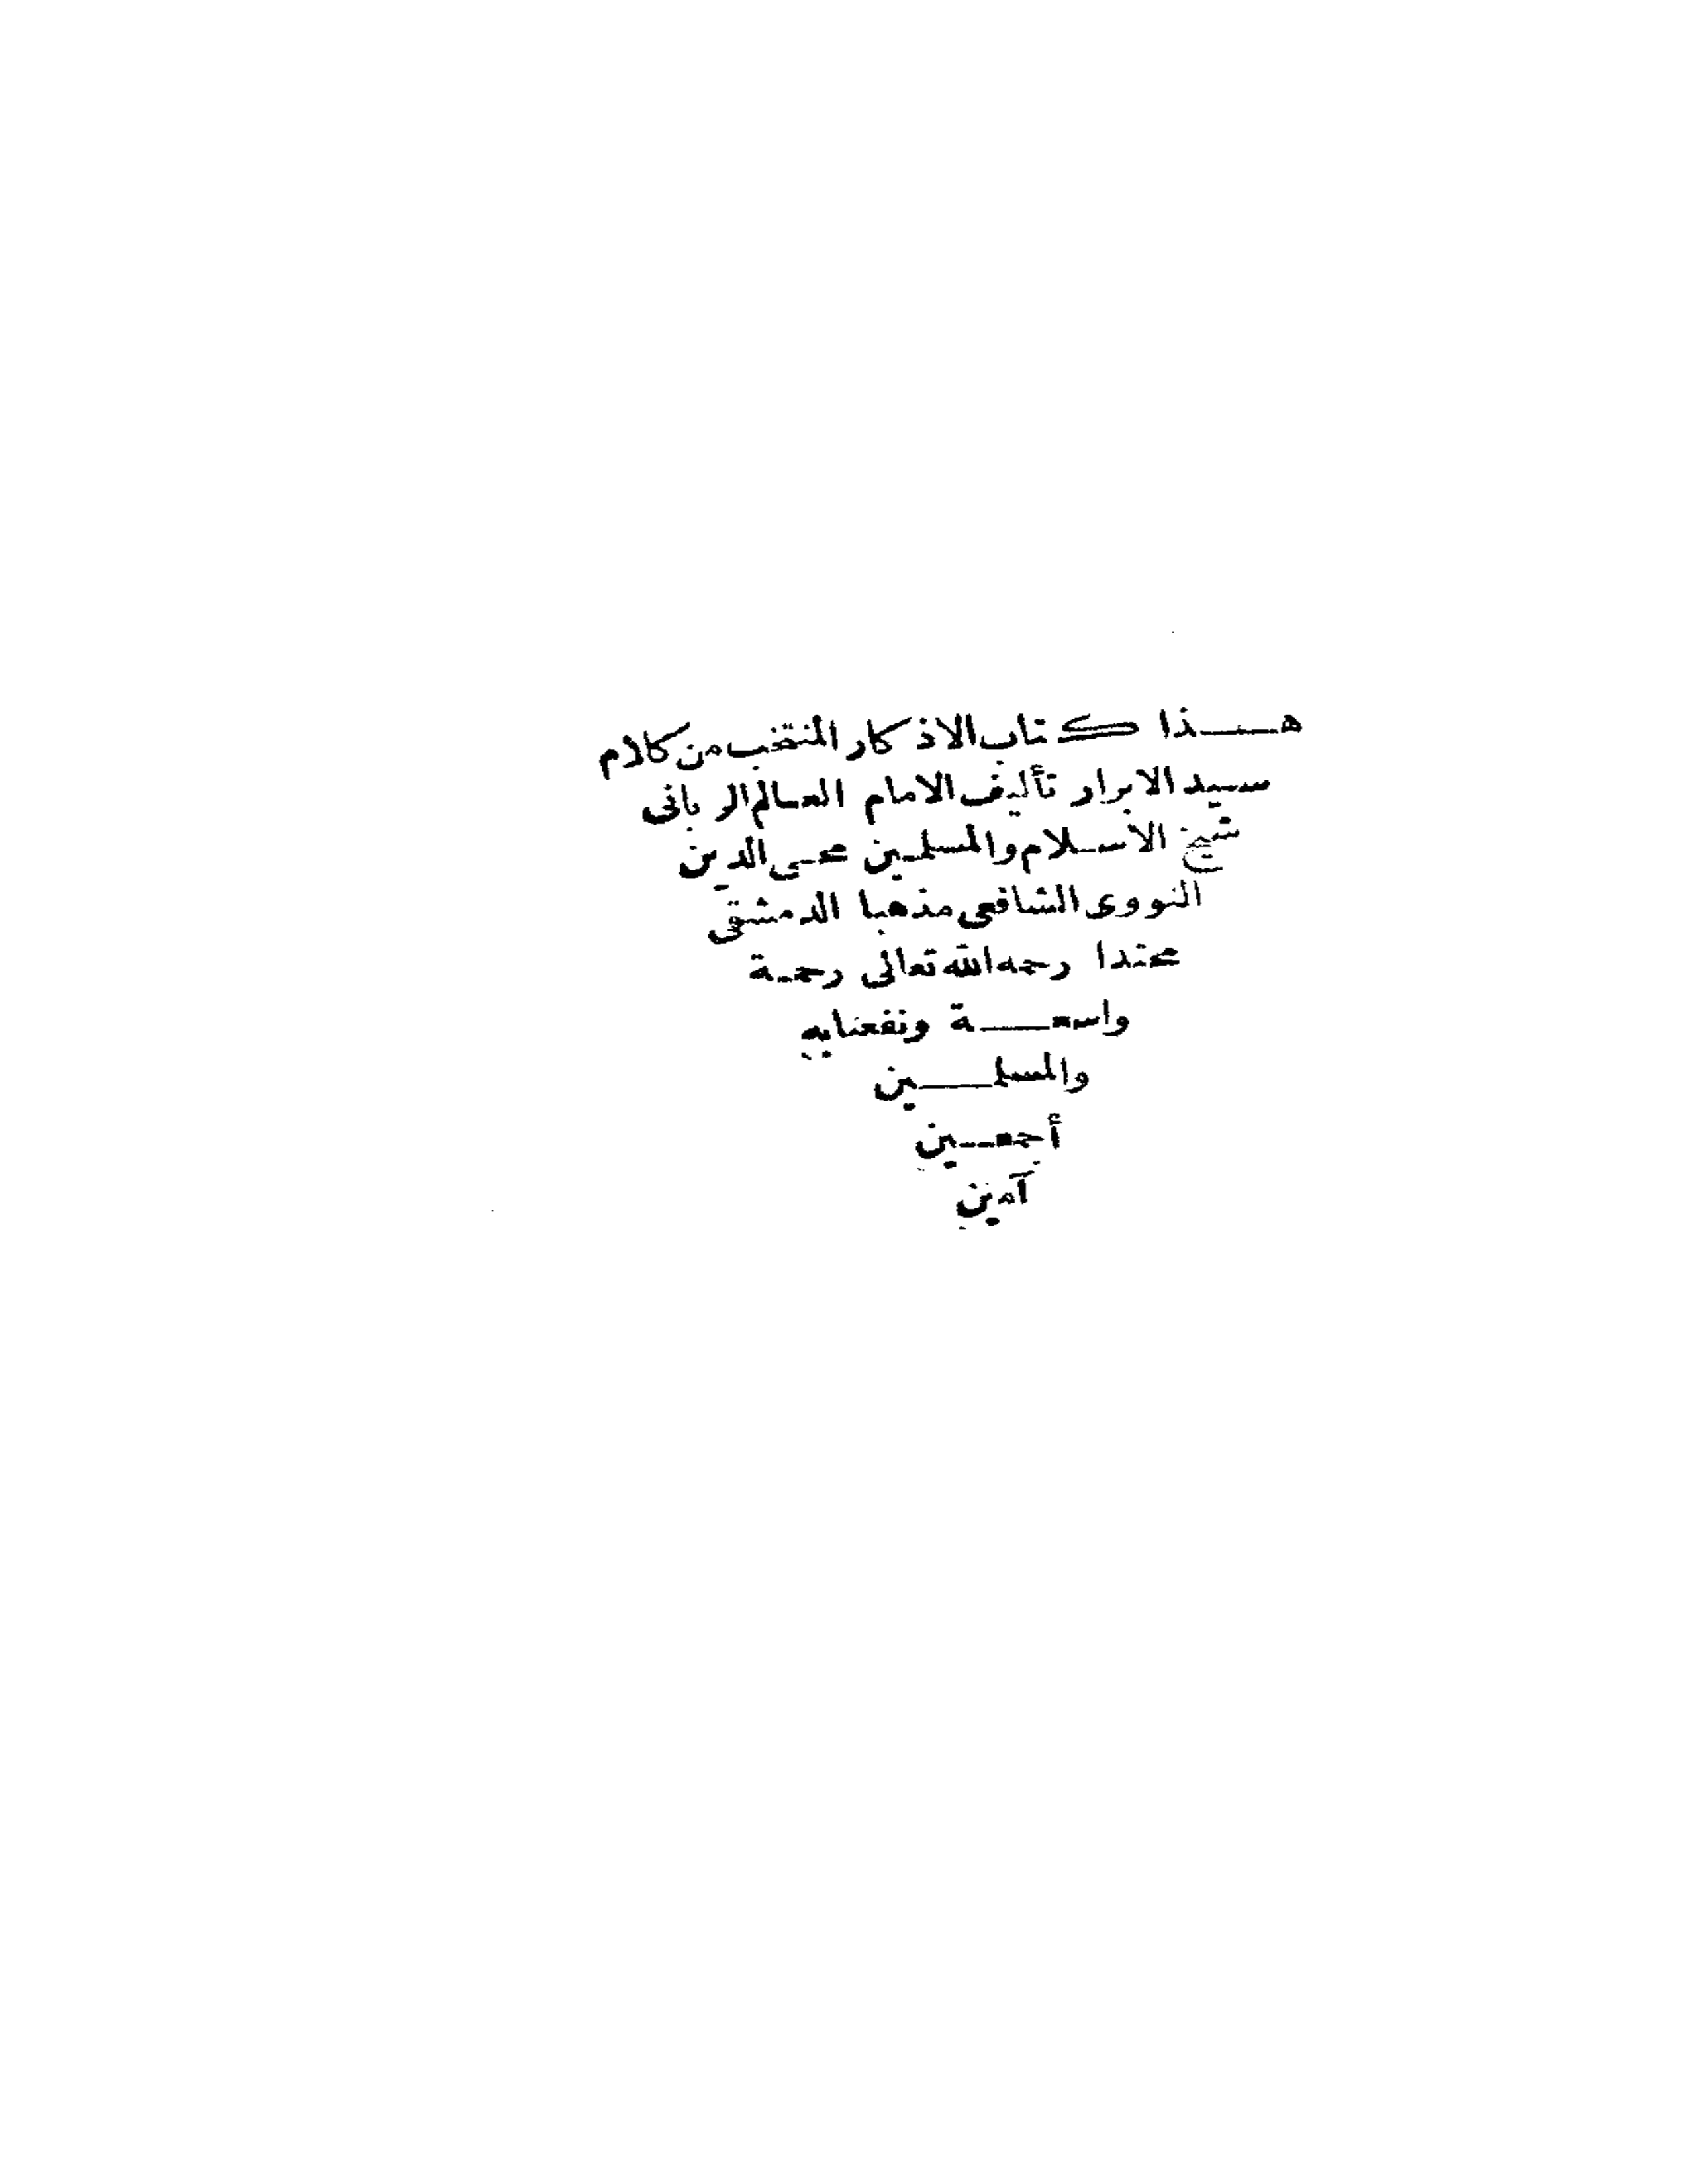 هذا كتاب الاذكار المنتخب من كلام
سيد الابرار تأليف الامام العالم الربانى
شيخ الاسلام والمسلمين محيى الدين
النووى الشافعى مذهبا الدمشقى
محتدا رحمه الله تعالى رحمة
واسعة ونفعنا به
والمسلمين
أجمعين
آمين